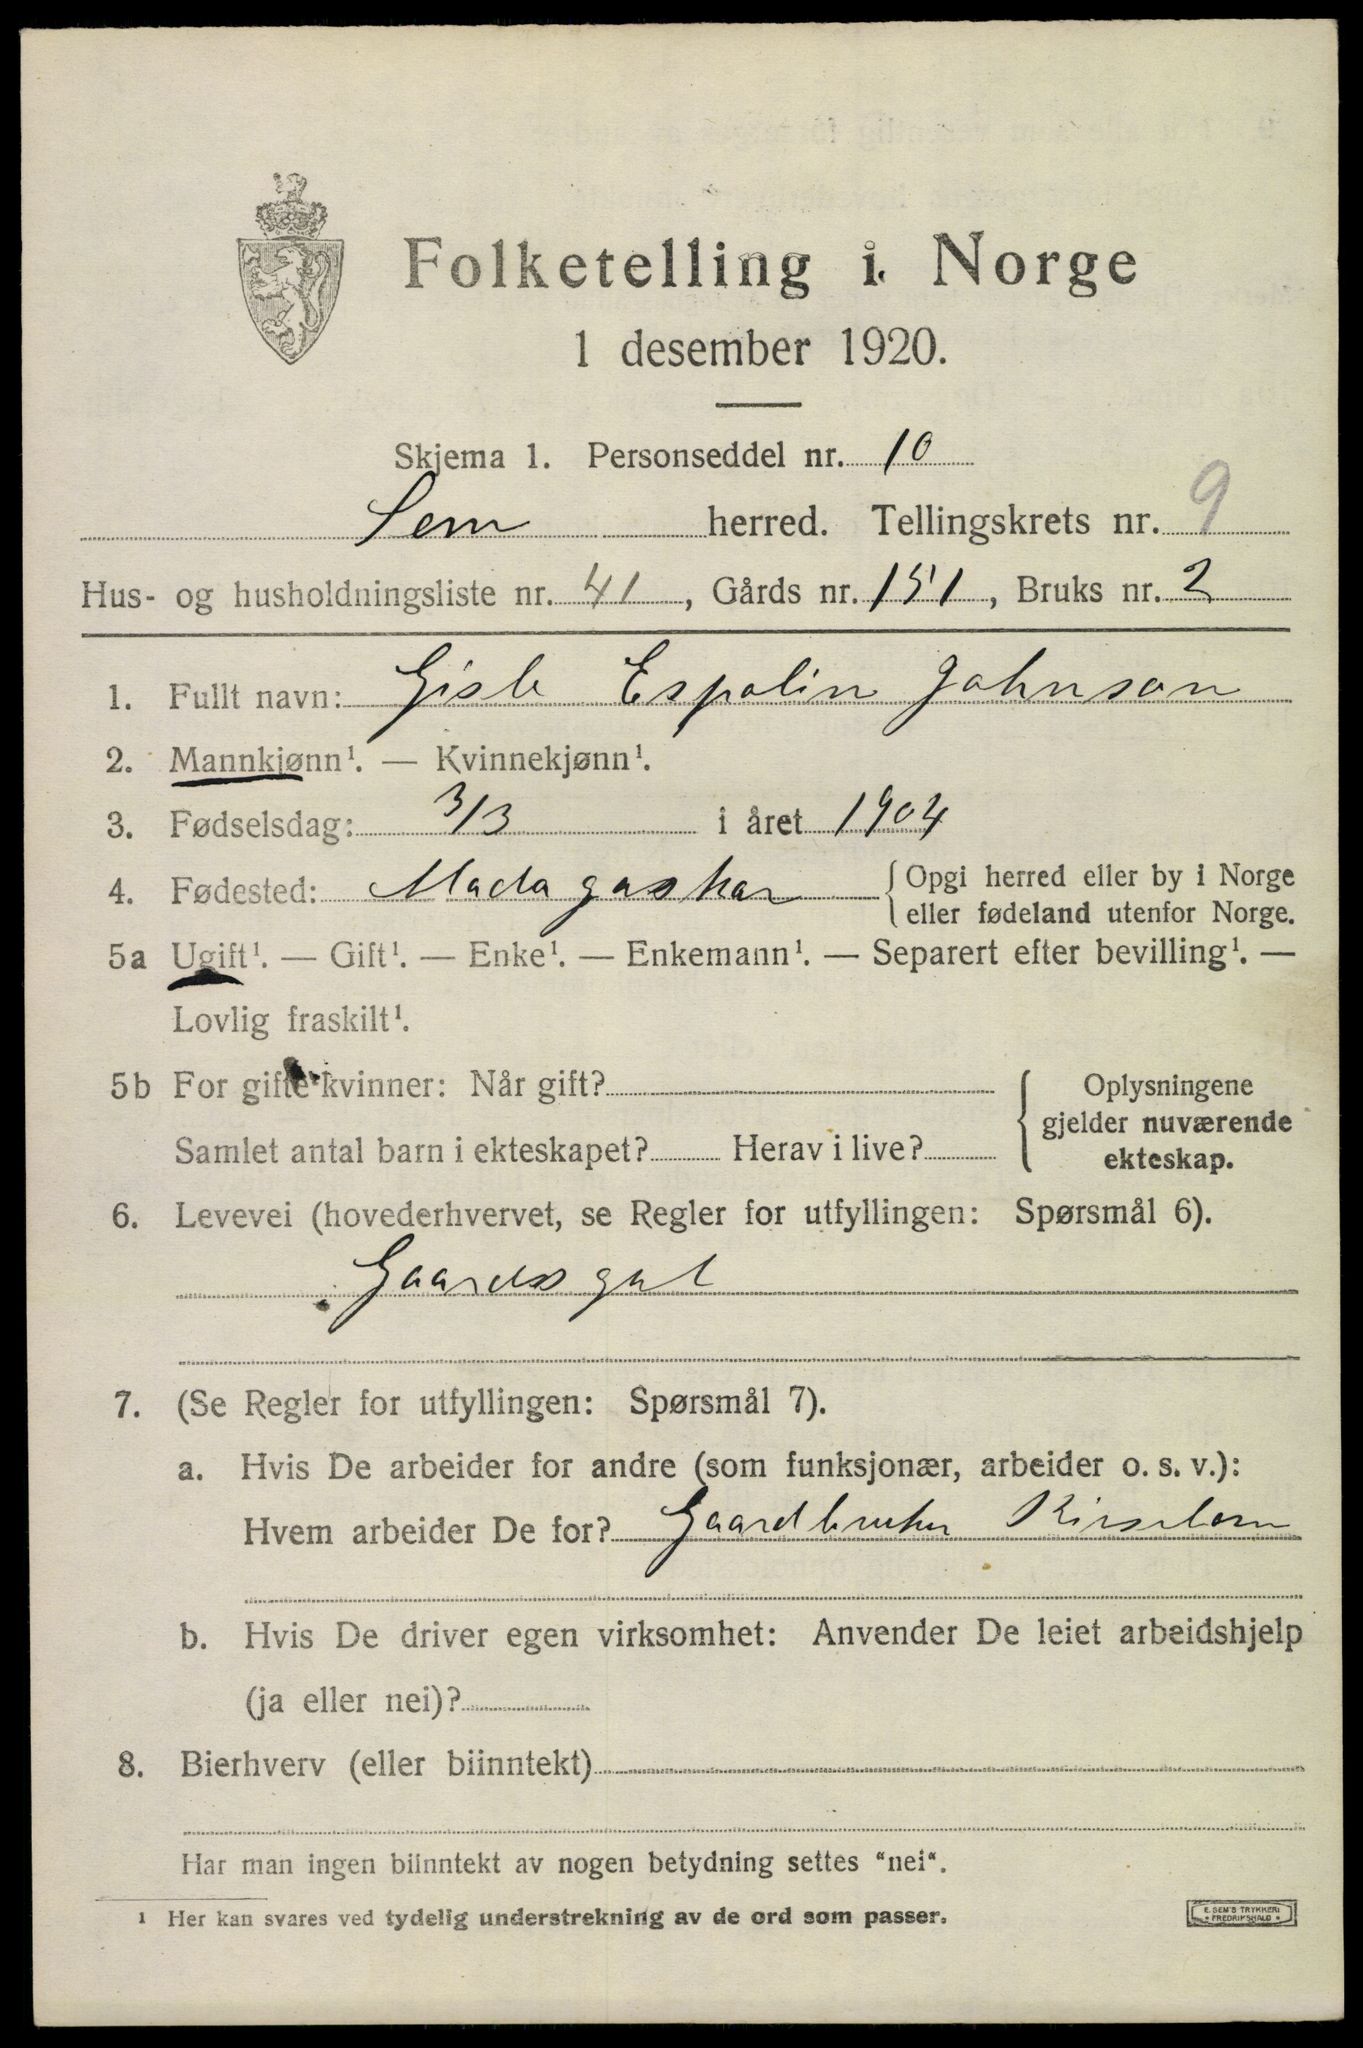 Folketelling i Norge
1 desember 1920.
Skjema 1. Personseddel nr. 10
Sem herred. Tellingskrets nr. 9
Hus- og husholdningsliste nr. 41, Gårds nr. 151, Bruks nr. 2
1. Fullt navn: Gisle Espolin Johnson
2. Mannkjønn¹. — Kvinnekjønn¹.
3. Fødselsdag: 3/3 i året 1904
4. Fødested: Madagaskar {Opgi herred eller by i Norge
eller fødeland utenfor Norge.
5a Ugift¹. — Gift¹. — Enke¹. — Enkemann¹. — Separert efter bevilling¹. —
Lovlig fraskilt¹.
5b For gifte kvinner: Når gift? { Oplysningene
gjelder nuværende
Samlet antal barn i ekteskapet? Herav i live? ekteskap.
6. Levevei (hovederhvervet, se Regler for utfyllingen: Spørsmål 6).
Gaardsgut
7. (Se Regler for utfyllingen: Spørsmål 7).
a. Hvis De arbeider for andre (som funksjonær, arbeider o. s. v.):
Hvem arbeider De for? Gaardbruker
b. Hvis De driver egen virksomhet: Anvender De leiet arbeidshjelp
(ja eller nei)?
8. Bierhverv (eller biinntekt)
Har man ingen biinntekt av nogen betydning settes "nei".
¹ Her kan svares ved tydelig understrekning av de ord som passer.
E. SEM'S TRYKKERI
* FREDRIKSHALD *